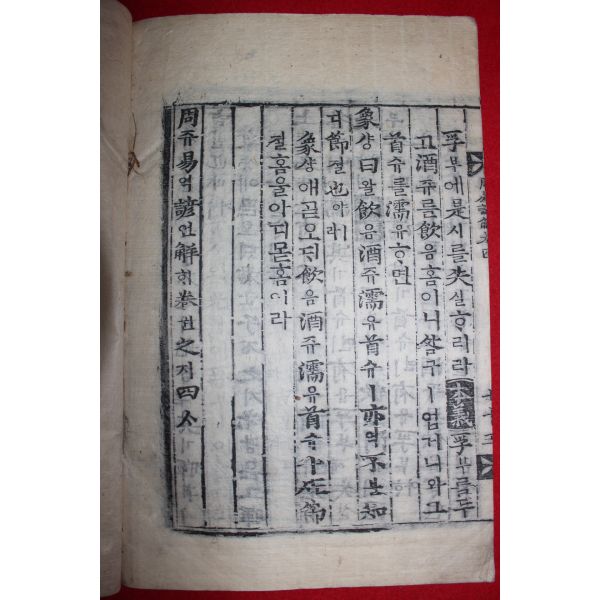 周易諺解卷四
孚부에是시를失실ᄒᆞ리라 本義 孚부를두
고酒쥬를飮음홈이니咎구ㅣ업거니와그
首슈를濡유ᄒᆞ면
象샹曰왈飮음酒쥬濡유首슈ㅣ亦역不블知
디節졀也야ㅣ라
象샹애ᄀᆞᆯ오ᄃᆡ飮음酒쥬濡유首슈 節
졀홈을아디몯홈이라
周쥬易역諺언解ᄒᆡ卷권之지四ᄉᆞ